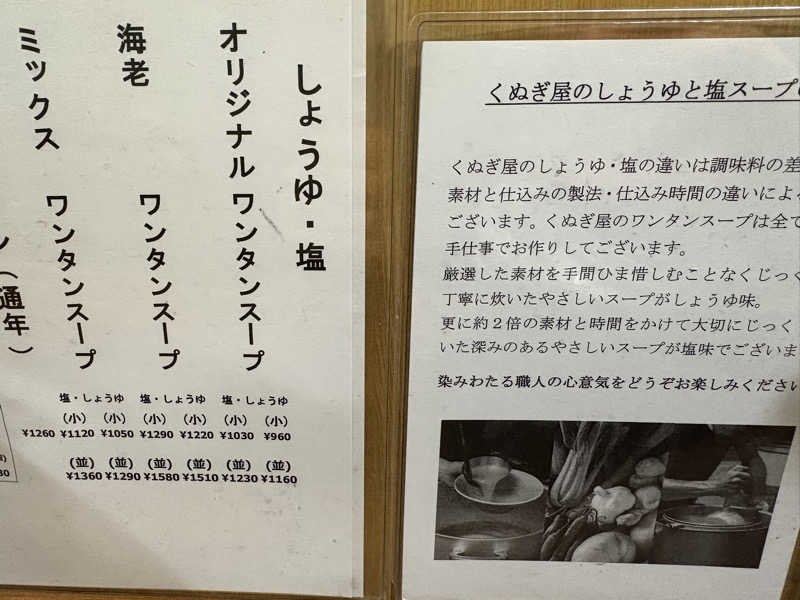 しょうゆ・塩
オリジナル ワンタンスープ
海老 ワンタンスープ
ミックス ワンタンスープ
（通年）
塩・しょうゆ 塩・しょうゆ 塩・しょうゆ
(小) (小) (小) (小) (小) (小)
¥1260 ¥1120 ¥1050 ¥1290 ¥1220 ¥1030 ¥960
(並) (並) (並) (並) (並) (並)
¥1360 ¥1290 ¥1580 ¥1510 ¥1230 ¥1160
くぬぎ屋のしょうゆと塩スープ
くぬぎ屋のしょうゆ・塩の違いは調味料の差
素材と仕込みの製法・仕込み時間の違いによ
ございます。くぬぎ屋のワンタンスープは全て
手仕事でお作りしてございます。
厳選した素材を手間ひま惜しむことなくじっく
丁寧に炊いたやさしいスープがしょうゆ味。
更に約２倍の素材と時間をかけて大切にじっく
いた深みのあるやさしいスープが塩味でございま
染みわたる職人の心意気をどうぞお楽しみください